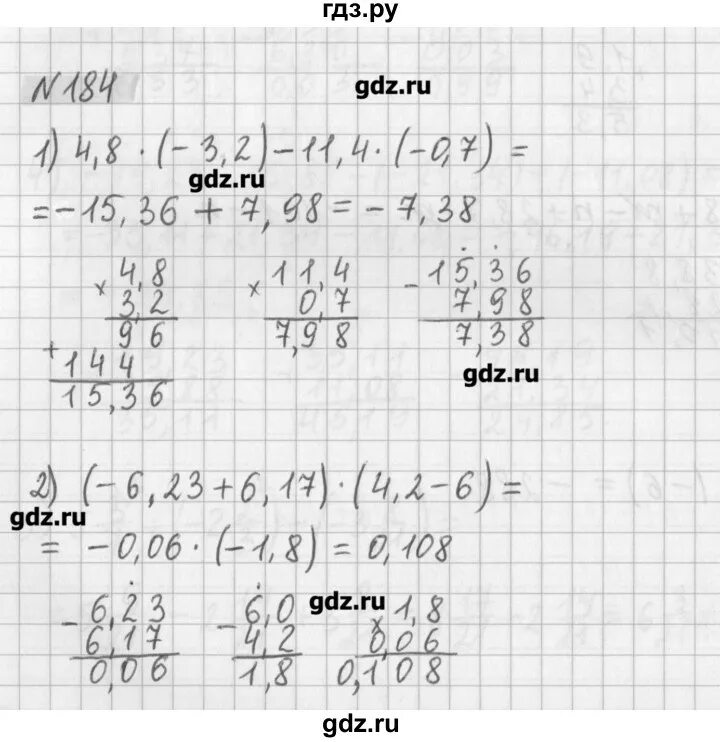 гдз.ру
№184
gdz.ru
1) 4,8 · (-3,2) - 11,4 · (-0,7) =
gdz.ru
= -15,36 + 7,98 = -7,38
× 4,8
3,2
96
+ 144
15,36
× 11,4
0,7
7,98
- 15,36
7,98
7,38
gdz.ru
2) (-6,23 + 6,17) · (4,2 - 6) =
gdz.ru
= -0,06 · (-1,8) = 0,108
- 6,23
6,17
0,06
- 6,0
4,2
1,8
gdz.ru
× 1,8
0,06
0,108
gdz.ru